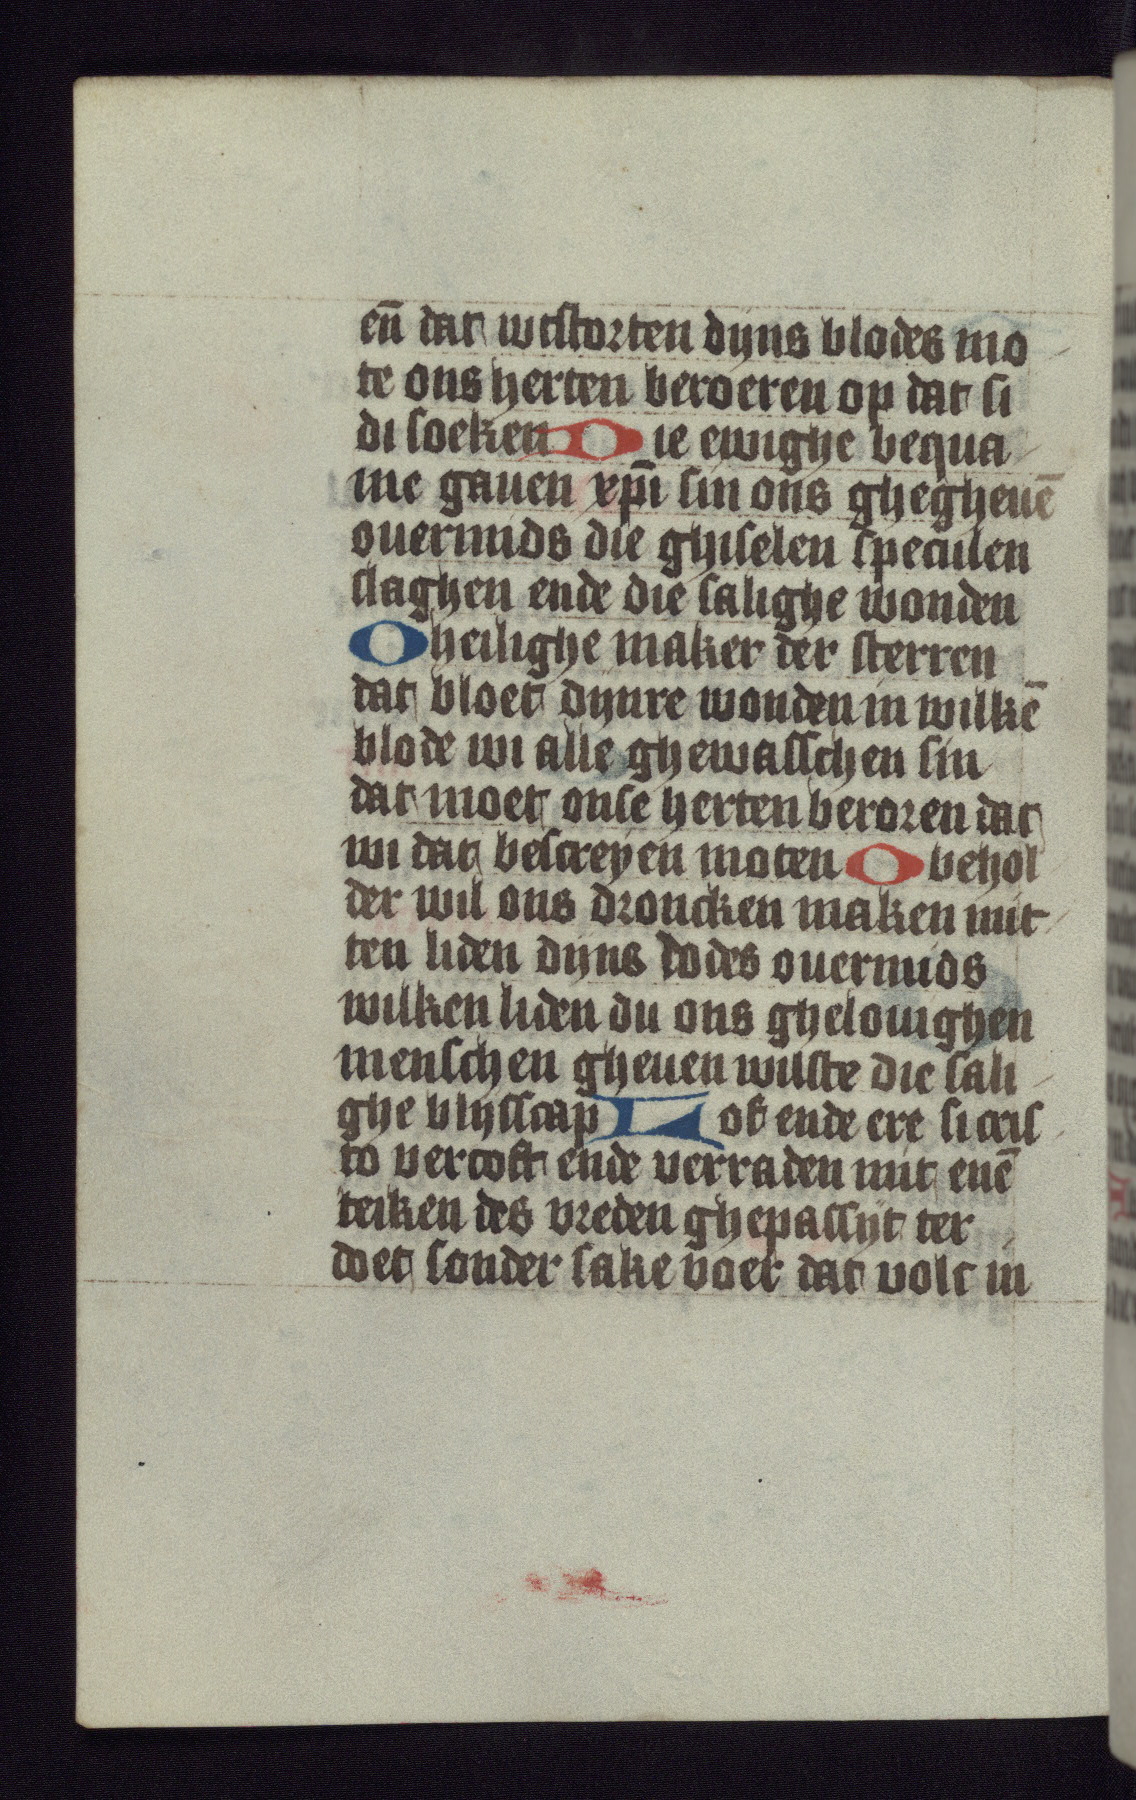 en̄ dat wtstorten dyns blodes mo
te ons herten beroeren op dat si
di soeken Die ewighe bequa
me gauen xp̄i sin ons ghegheuē
ouermids die ghiselen speculen
slaghen ende die salighe wonden
O heilighe maker der sterren
dat bloet dynre wonden in wilkē
blode wi alle ghewasschen sin
dat moet onse herten beroren dat
wi dat bescreyen moten O behol
der wil ons droncken maken mit
ten liden dyns dodes ouermids
wilken liden du ons ghelouighen
menschen gheuen wilste die sali
ghe blysscap Lof ende ere si cris
to vercoft ende verraden mit enē
teiken des vreden ghepassyt ter
doet sonder sake voer dat volc in